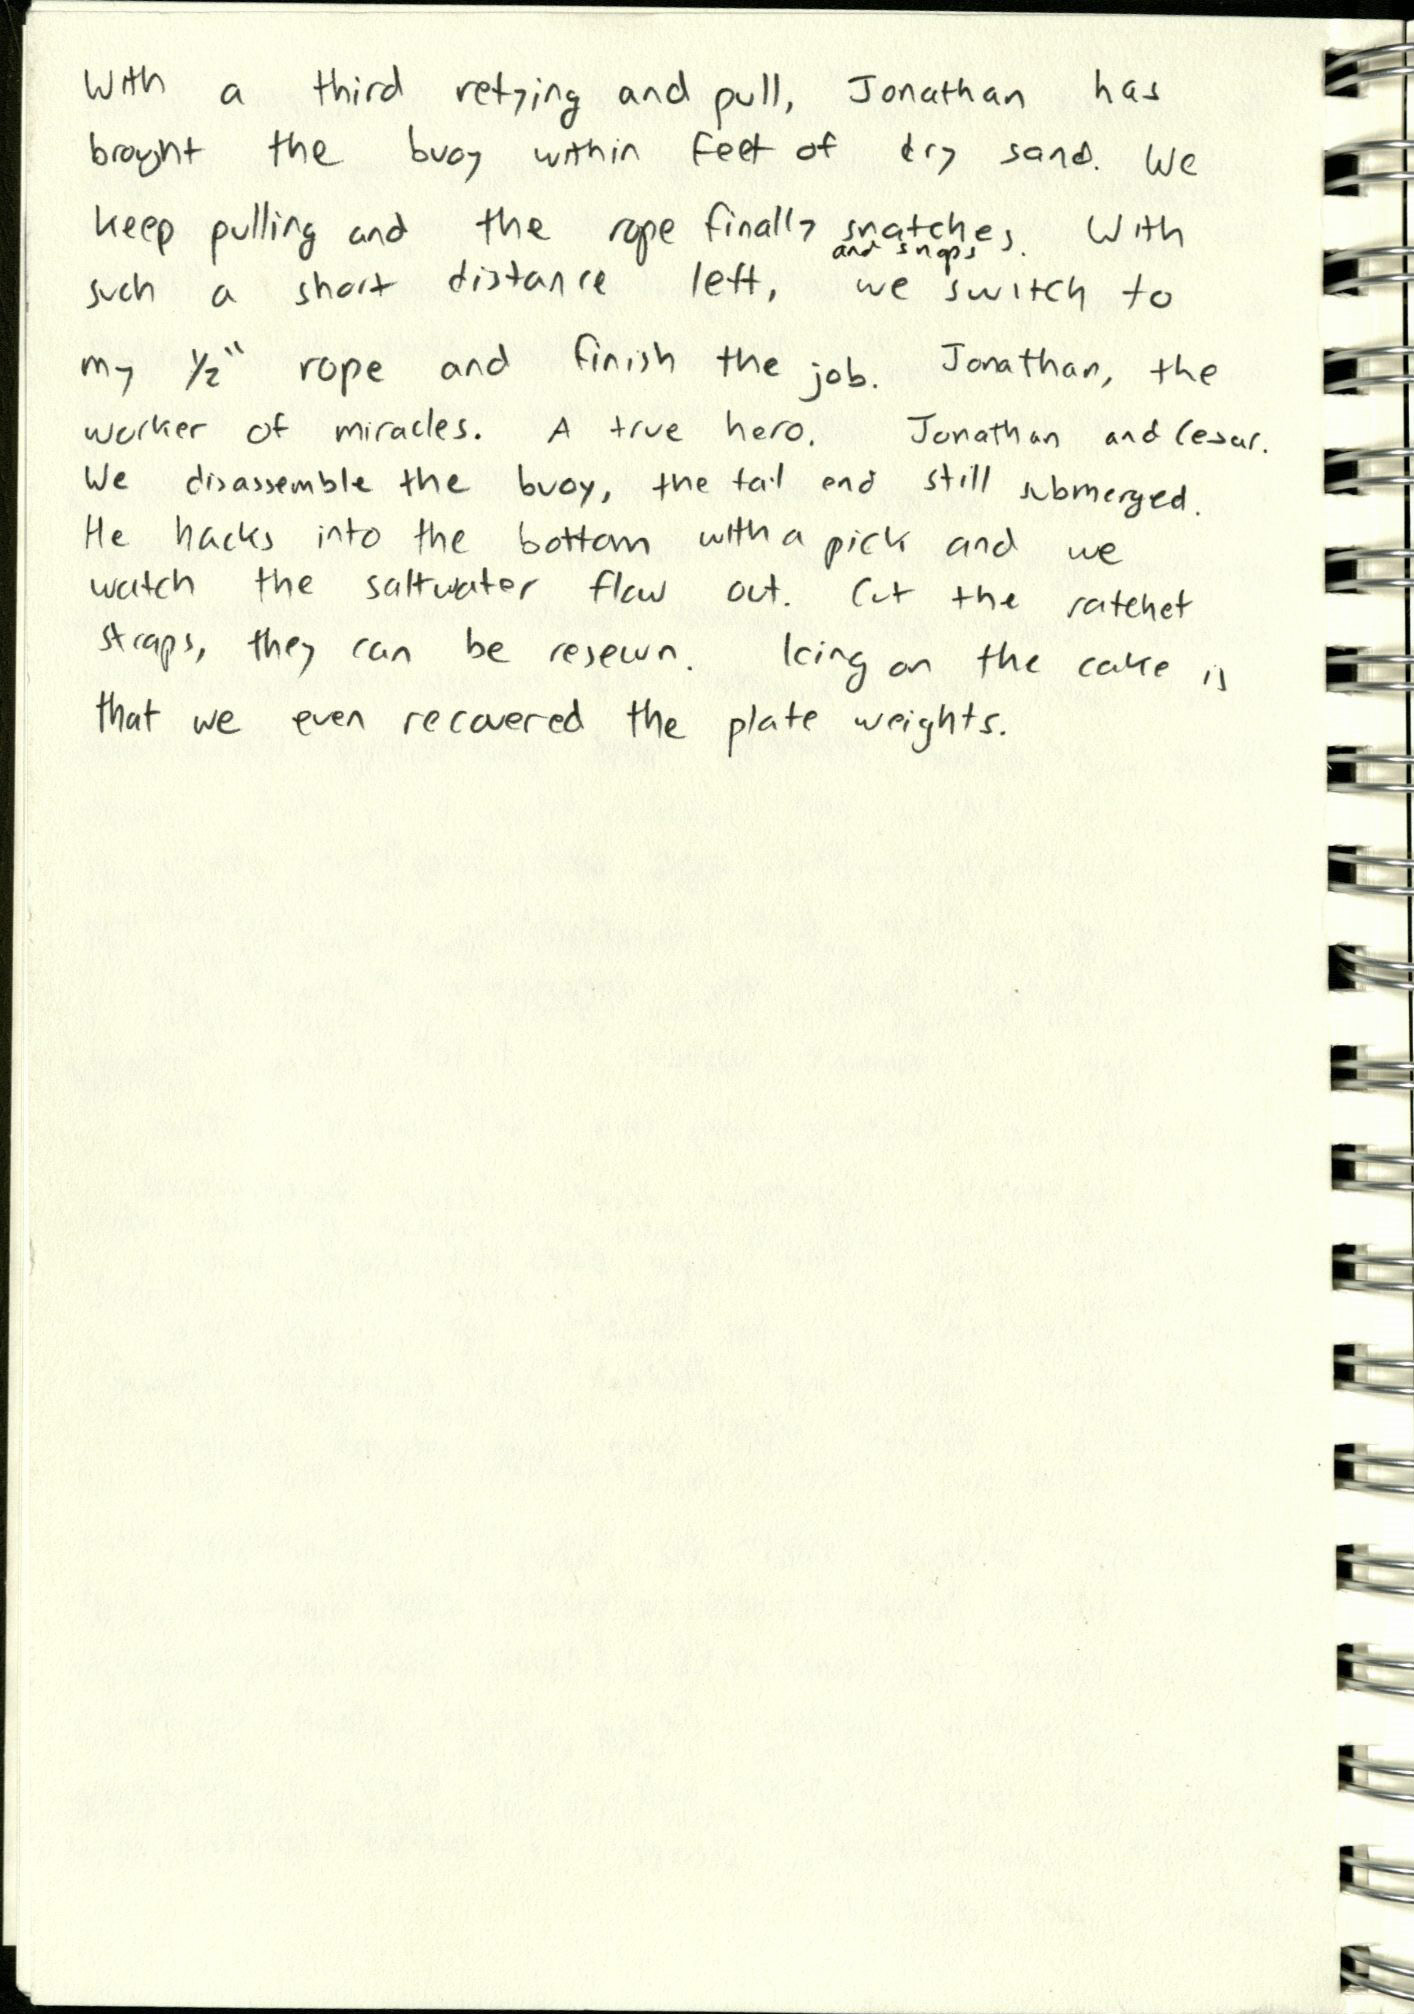 With a third retying and pull, Jonathan has
brought the buoy within feet of dry sand. We
keep pulling and the rope finally snatches.
and snaps
With
such a short distance left, we switch to
my 1/2" rope and finish the job. Jonathan, the
worker of miracles. A true hero. Jonathan and Cesar.
We disassemble the buoy, the tail end still submerged.
He hacks into the bottom with a pick and we
watch the saltwater flow out. Cut the ratchet
straps, they can be resewn. Icing on the cake is
that we even recovered the plate weights.